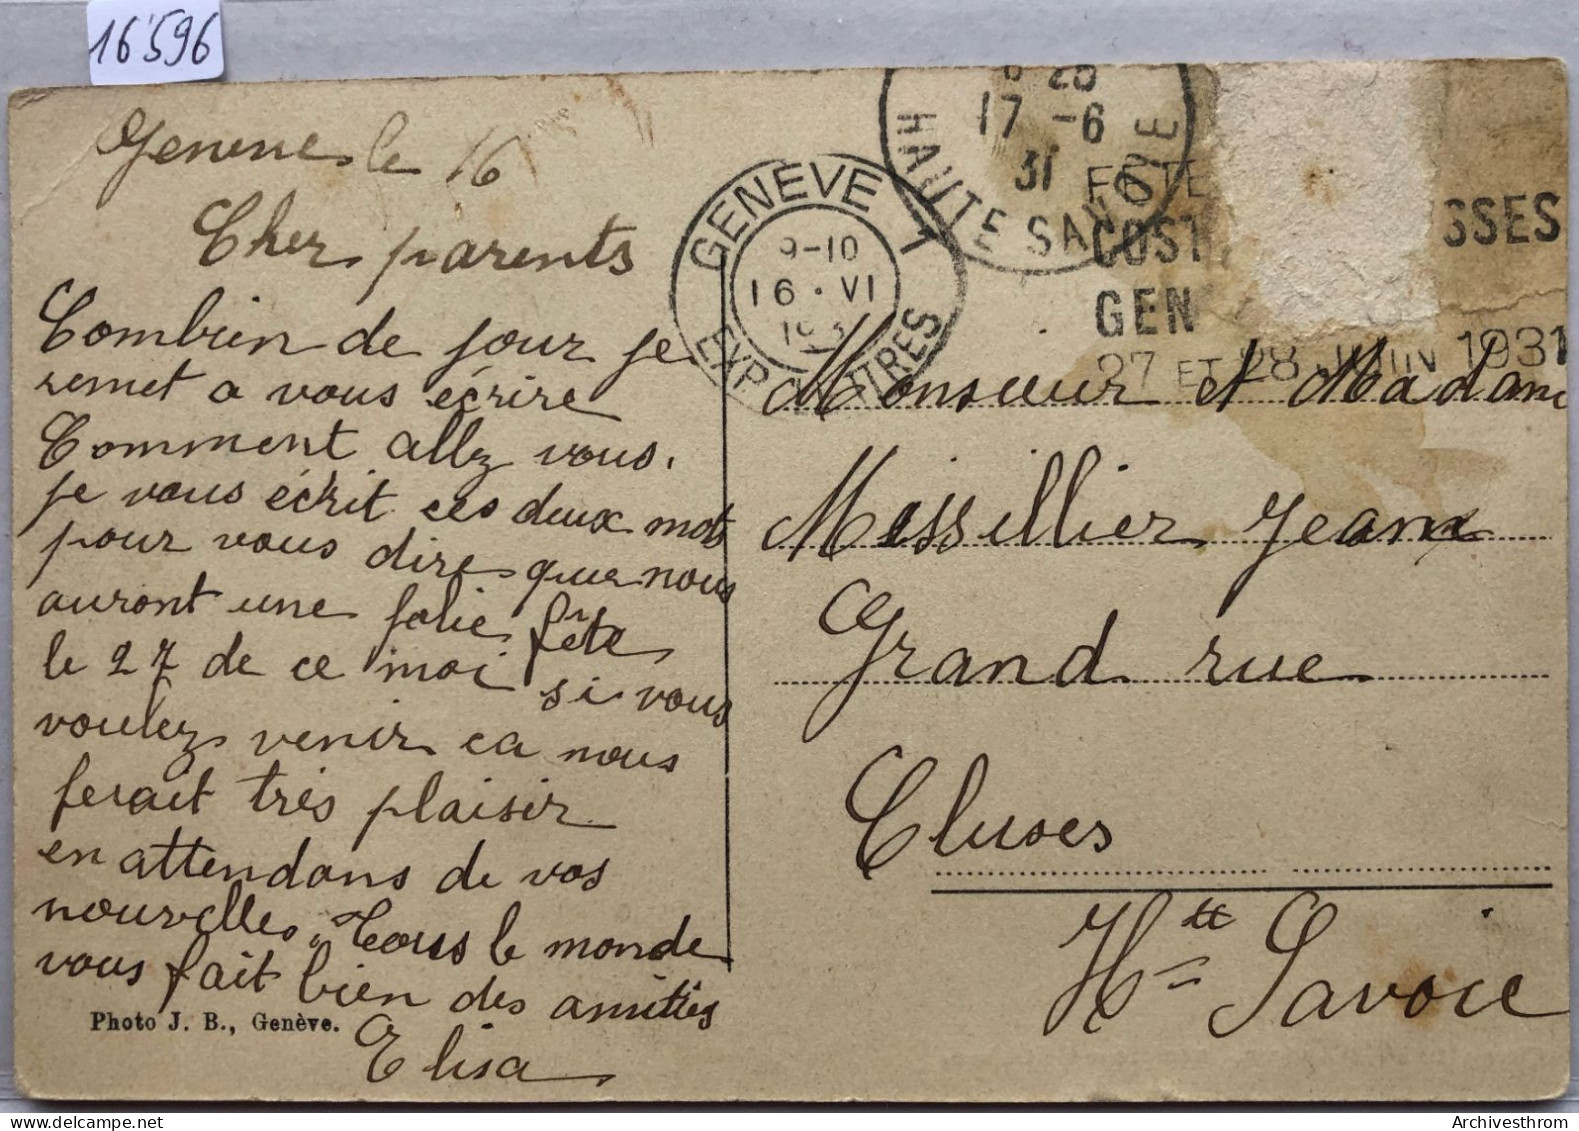 16'596
Geneve le 16
Cher parents
Combien de jour je
remet a vous écrire
Comment allez vous.
je vous écrit ces deux mots
pour vous dire que nous
auront une jolie fête
le 27 de ce moi si vous
voulez venir ca nous
ferait très plaisir
en attendans de vos
nouvelles. Tous le monde
vous fait bien des amitiés
Elisa
Photo J. B., Genève.
GENÈVE 1
9-10
16·VI
EXP. LETTRES
25
17 -6
31
HAUTE SAVOIE
FÊTE
COST SSES
GEN
27 ET 28 JUIN 1931
Monsieur et Madame
Missillier Jean
Grand rue
Cluses
Htte Savoie
Archivesthrom